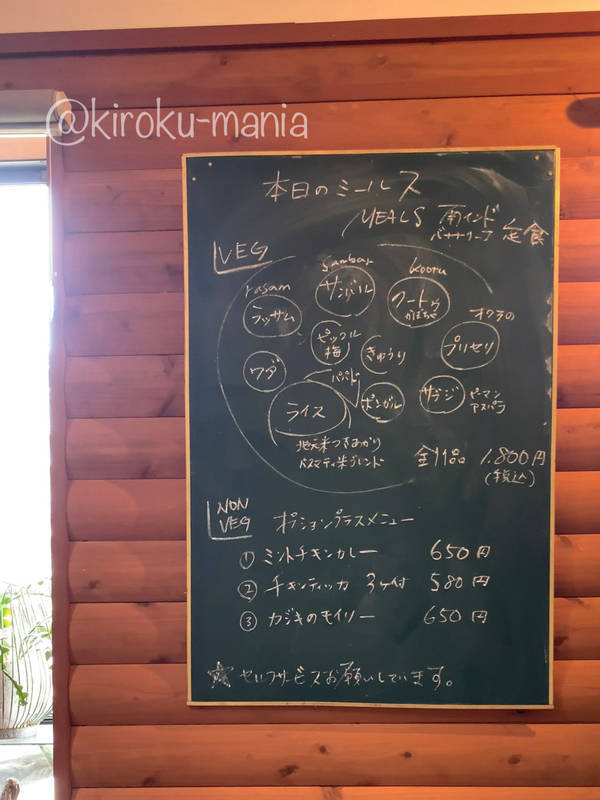 @kiroku-mania
本日のミールス
MEALS 南インド
バナナリーフ 定食
VEG
rasam
ラッサム
Sambar
サンバル
kootu
クートゥ
かぼちゃ
オクラの
プリセリ
ピックル
梅
きゅうり
ワダ
パパド
ライス
ポンガル
サブジ
ピーマン
アスパラ
地元米つきあかり
バスマティ米ブレンド
全11品 1,800円
(税込)
NON
VEG
オプションプラスメニュー
① ミントチキンカレー 650円
② チキンティッカ 3ヶ付 580円
③ カジキのモイリー 650円
☆ セルフサービスお願いしています。